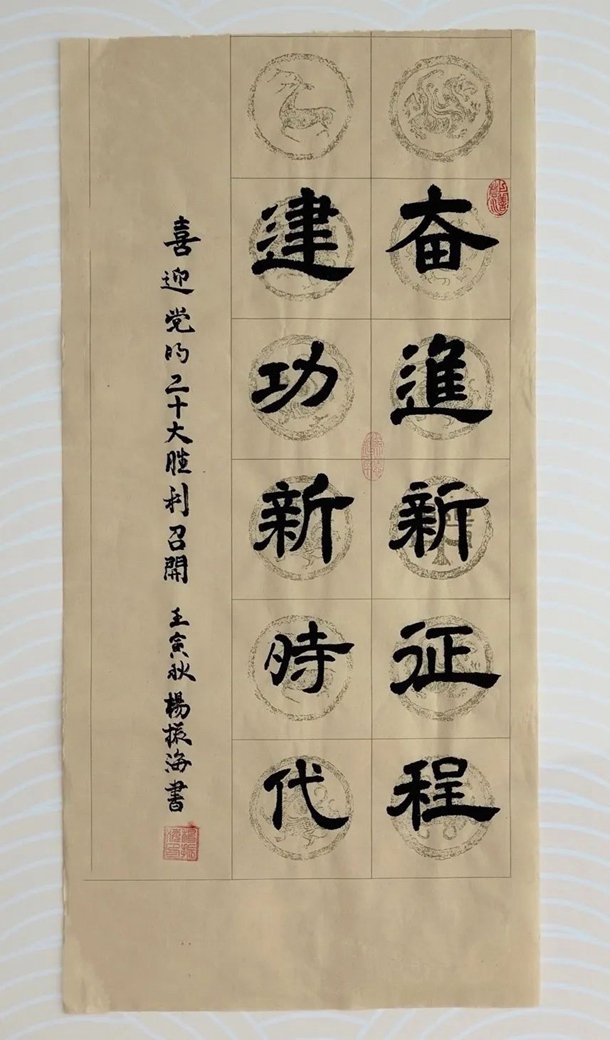 奋進新征程
建功新時代
喜迎党的二十大胜利召開 壬寅秋 楊振海書